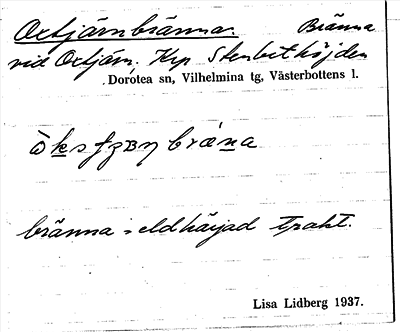 Oxtjärnbränna. Bränna
vid Oxtjärn. Krp Stenbithöjden
Dorotea sn, Vilhelmina tg, Västerbottens l.
bränna = eldhärjad trakt.
Lisa Lidberg 1937.